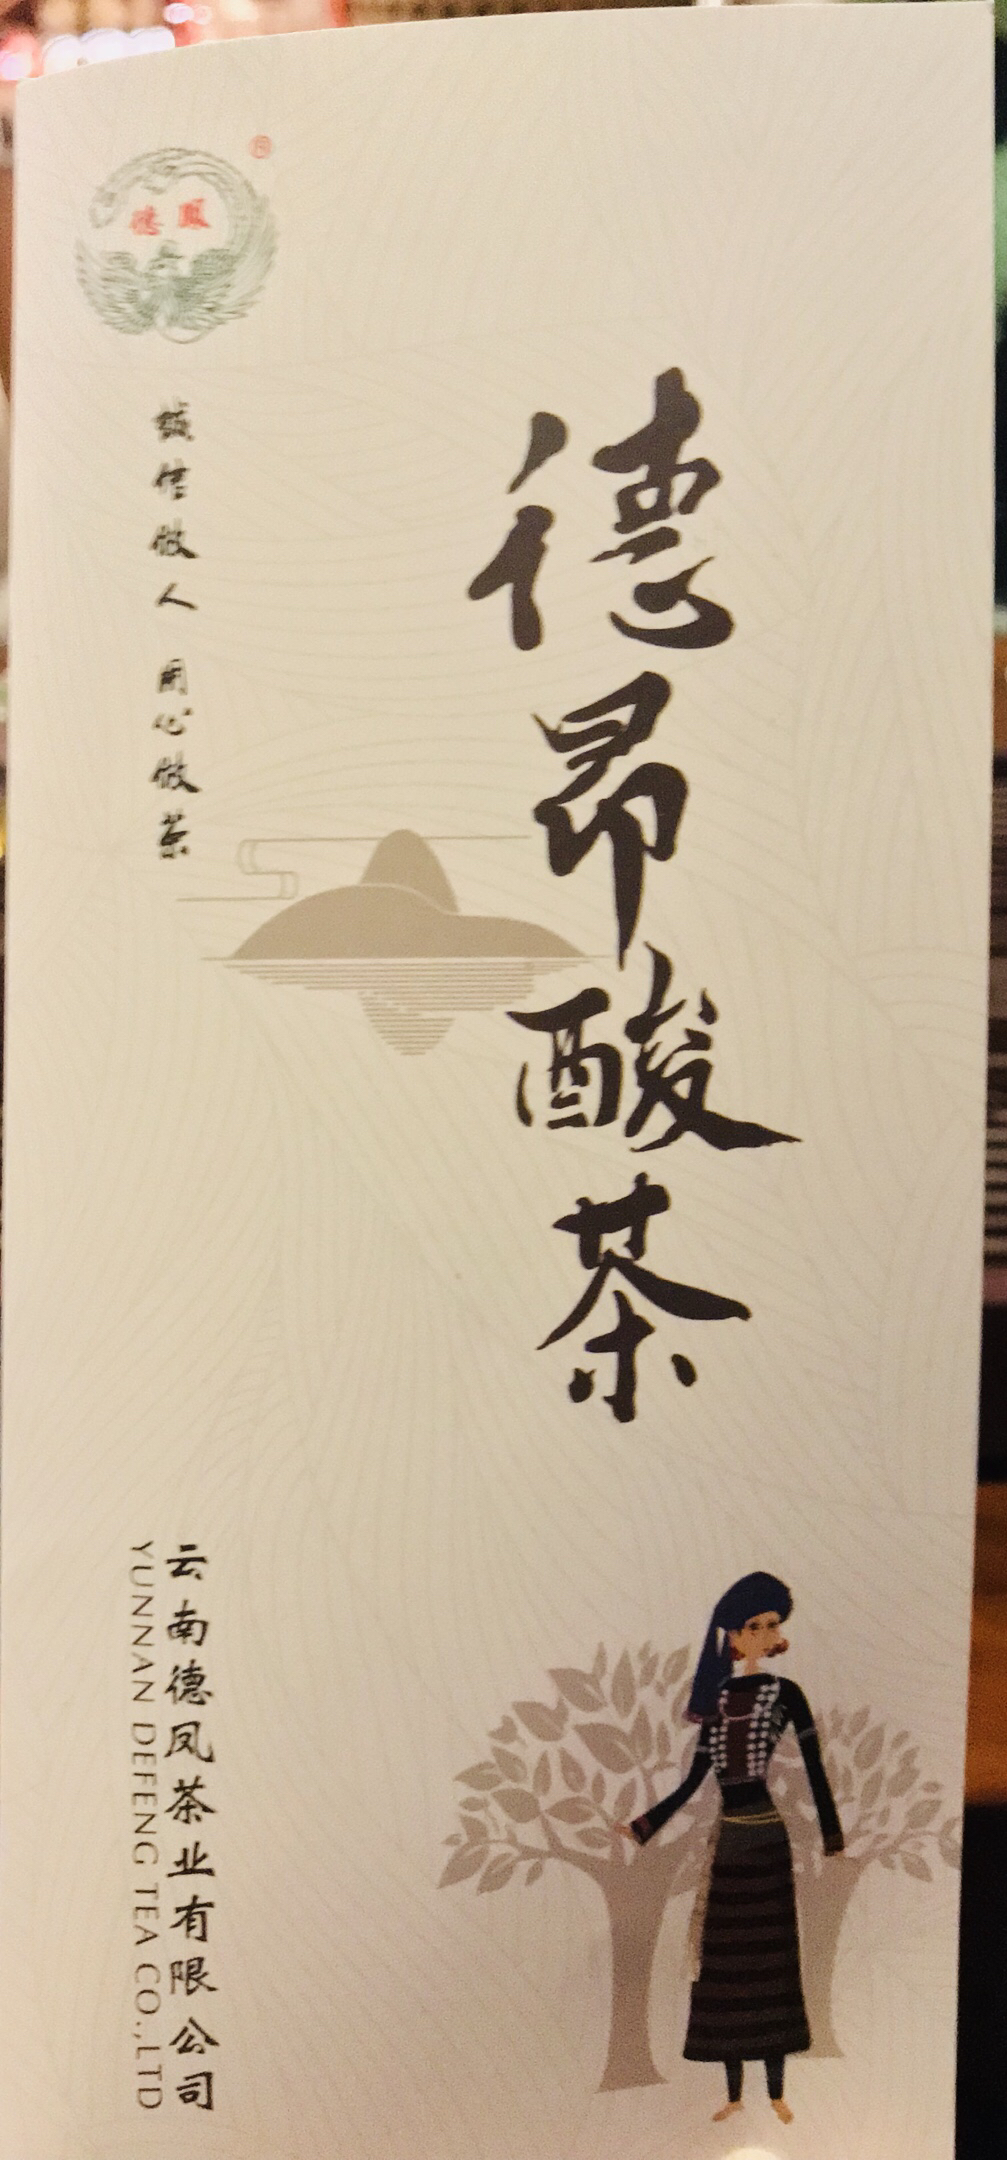 德鳳
®
誠信做人 用心做茶
德昂酸茶
云南德凤茶业有限公司
YUNNAN DEFENG TEA CO.,LTD